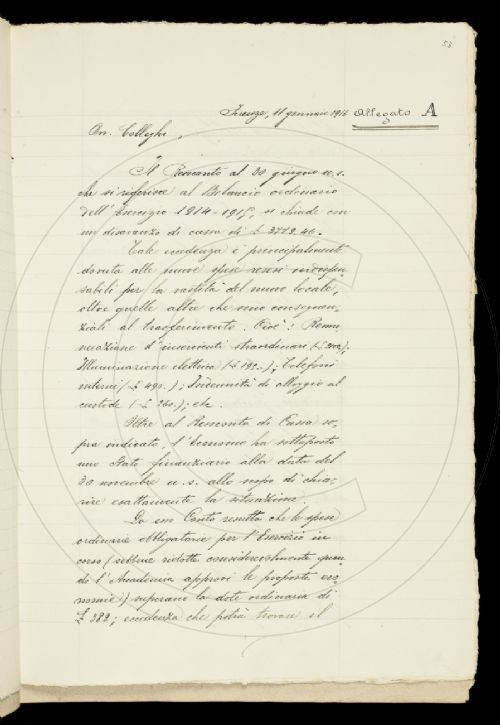 53
Firenze, 11 gennaio 1916 Allegato A
On. Colleghi,
Il Resoconto al 30 giugno u. s.
che si riferisce al Bilancio ordinario
dell'Esercizio 1914-1915, si chiude con
un disavanzo di cassa di £ 2772.46.
Tale eccedenza è principalmente
dovuta alle nuove spese resesi indispen
sabili per la vastità del nuovo locale,
oltre quelle altre che sono conseguen
ziali al trasferimento. Cioè: Remu
nerazione d'inservienti straordinari (£ 202);
Illuminazione elettrica (£ 192..); Telefoni
interni (£ 490.); Indennità di alloggio al
custode (£ 260.); etc.
Oltre al Resoconto di Cassa so
pra indicato, l'Economo ha sottoposto
uno stato finanziario alla data del
30 novembre u. s. allo scopo di chia
rire esattamente la situazione.
Da esso Conto risulta che le spese
ordinarie obbligatorie per l'Esercizio in
corso (sebbene ridotte considerevolmente quan
do l'Accademia approvi le proposte eco
nomie) superano la dote ordinaria di
£ 382; eccedenza che potrà trovare il